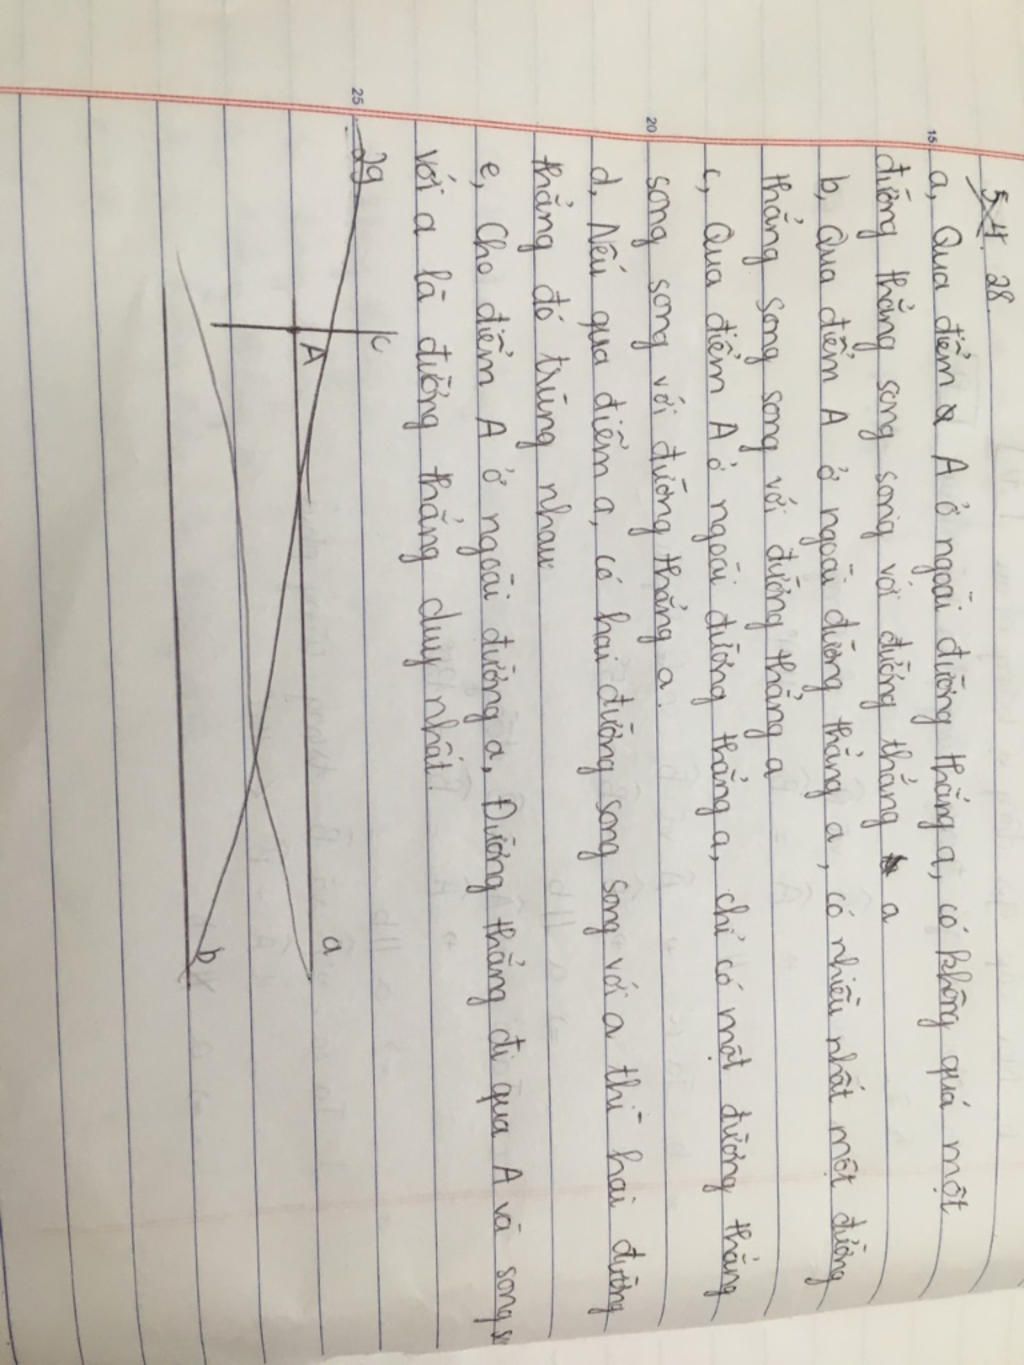 5.4. 28.
15
a, Qua điểm A ở ngoài đường thẳng a, có không quá một
đường thẳng song song với đường thẳng a
b, Qua điểm A ở ngoài đường thẳng a, có nhiều nhất một đường
thẳng song song với đường thẳng a
c, Qua điểm A ở ngoài đường thẳng a, chỉ có một đường thẳng
20
song song với đường thẳng a.
d, Nếu qua điểm a, có hai đường song song với a thì hai đường
thẳng đó trùng nhau
e, Cho điểm A ở ngoài đường a, Đường thẳng đi qua A và song s
với a là đường thẳng duy nhất.
25
29
c
A
a
b